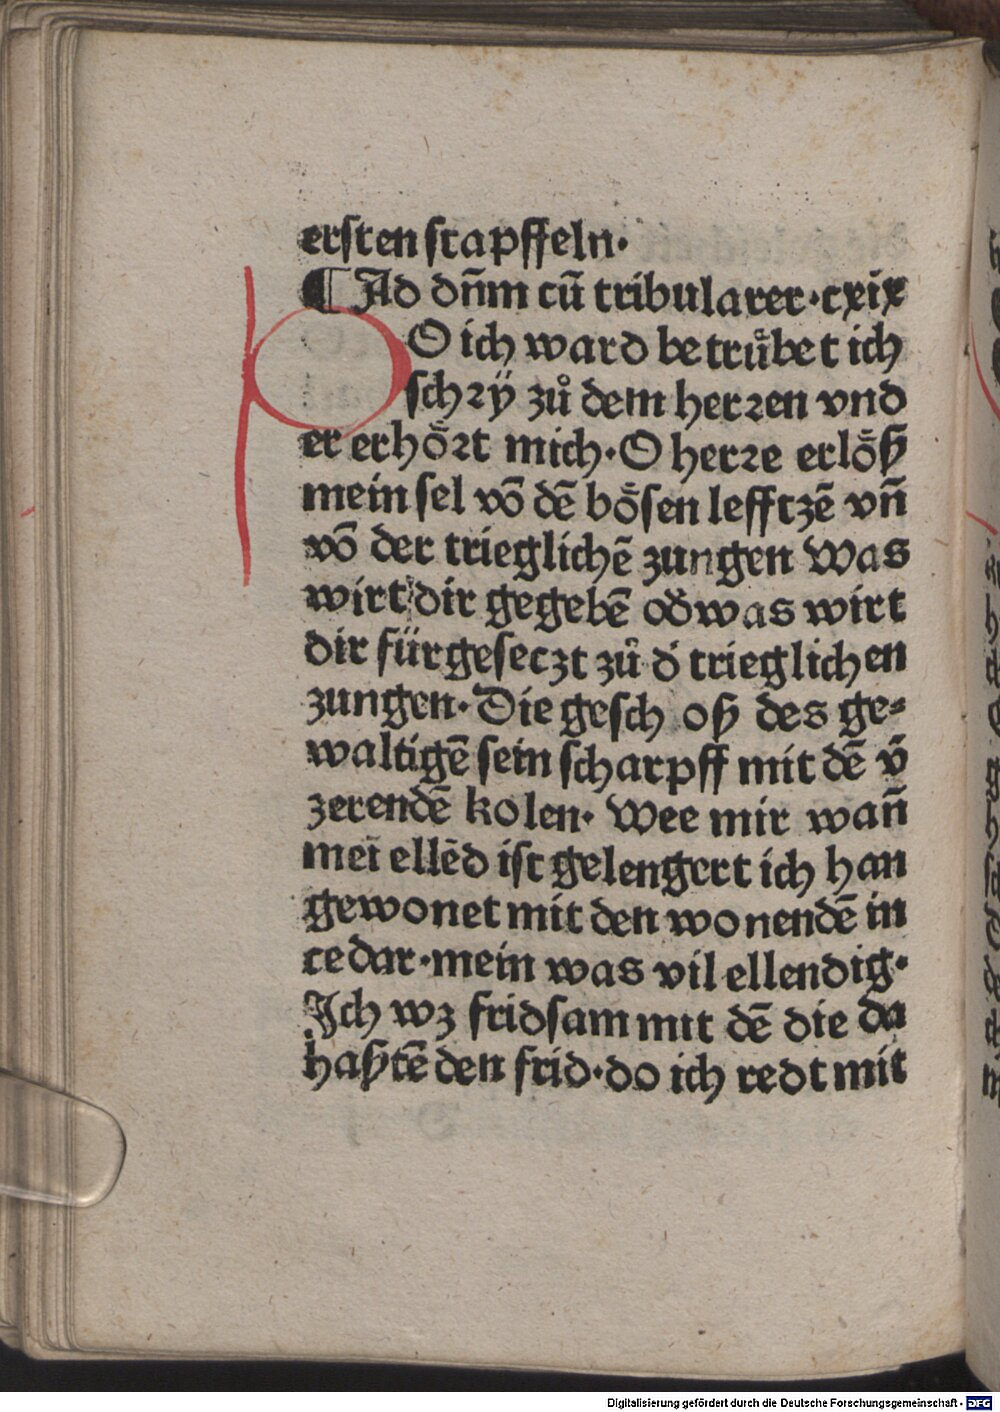 ersten stapffeln·
¶ Ad dn̄m cū tribularer·cxix
pO ich ward betruͤbet ich
schry̎ zů dem herren vnd
er erhoͤrt mich·O herre erloͤß
mein sel vō dē boͤsen lefftzē vn̄
vō der trieglichē zungen Was
wirt dir gegebē od̄ was wirt
dir fürgesetzt zů d' trieglichen
zungen·Die geschoß des ge⸗
waltigē sein scharpff mit dē v̄
zerendē kolen·Wee mir wan̄
meī ellēd ist gelengert ich han
gewonet mit den wonendē in
cedar·mein was vil ellendig·
Ich wz fridsam mit dē die da
haßtē den frid·do ich redt mit
Digitalisierung gefördert durch die Deutsche Forschungsgemeinschaft - DFG